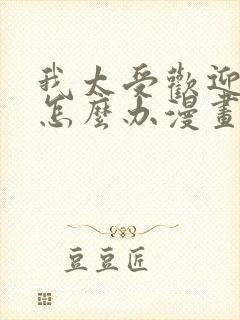 我太受歡迎
怎麼办漫畫
豆豆匠